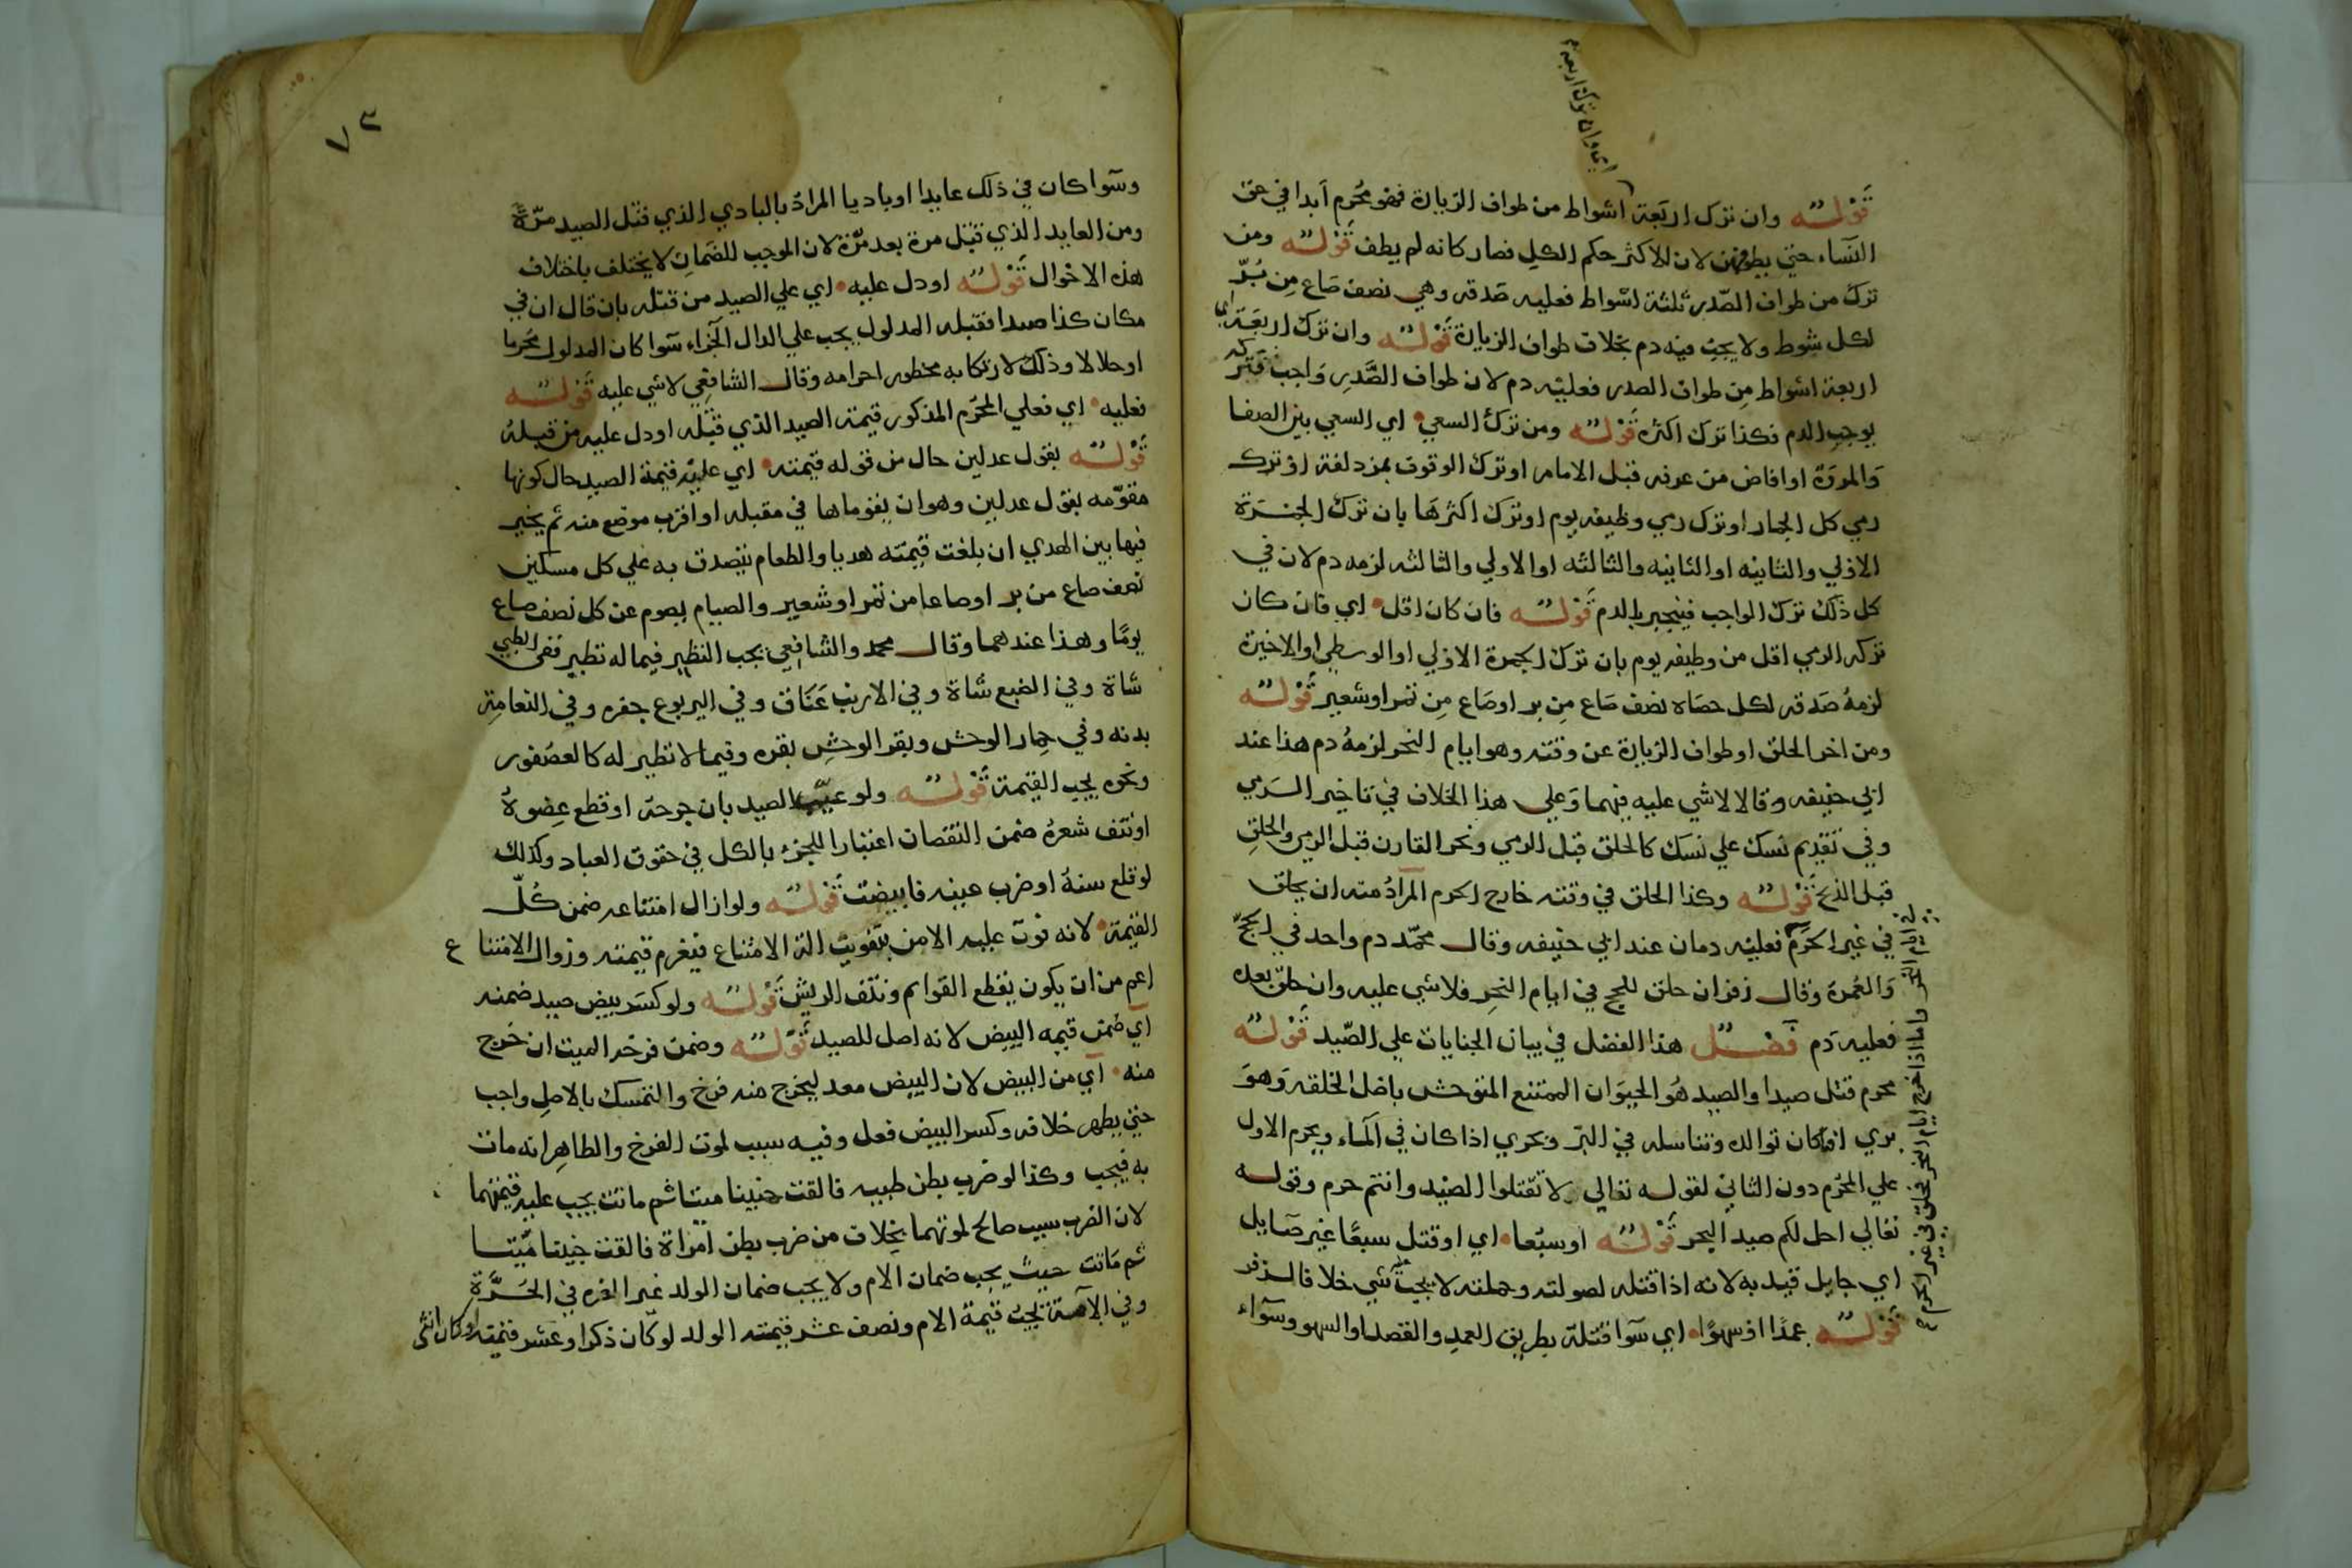 اي وان ترك اربعة
قوله وان ترك اربعة اشواط من طواف الزيارة فهو محرم ابدا في حق
النساء حتى يطوفهن لان للاكثر حكم الكل فصار كانه لم يطف قوله ومن
ترك من طواف الصدر ثلثة اشواط فعليه صدقه وهي نصف صاع من بر
لكل شوط ولا يجب فيه دم بخلاف طواف الزيارة قوله وان ترك اربعة اي
اربعة اشواط من طواف الصدر فعليه دم لان طواف الصدر واجب فتركه
يوجب الدم فكذا ترك اكثره قوله ومن ترك السعي اي السعي بين الصفا
والمروة او افاض من عرفه قبل الامام او ترك الوقوف بمزدلفة او ترك
رمي كل الجمار او ترك رمي وظيفه يوم او ترك اكثرها بان ترك الجمرة
الاولي والثانيه او الثانيه والثالثه او الاولي والثالثه لزمه دم لان في
كل ذلك ترك الواجب فينجبر بالدم قوله فان كان اقل اي فان كان
تركه الرمي اقل من وظيفه يوم بان ترك الجمرة الاولي او الوسطي او الاخيرة
لزمه صدقه لكل حصاه نصف صاع من بر او صاع من تمر او شعير قوله
ومن اخر الحلق او طواف الزيارة عن وقته وهو ايام النحر لزمه دم هذا عند
ابي حنيفه وقالا لا شي عليه فيهما وعلي هذا الخلاف في تاخير الرمي
وفي تقديم نسك علي نسك كالحلق قبل الرمي ونحر القارن قبل الرمي والحلق
قبل الذبح قوله وكذا الحلق في وقته خارج الحرم المراد منه ان يحلق
في غير الحرم فعليه دمان عند ابي حنيفه وقال محمد دم واحد في الحج
والعمرة وقال زفر ان حلق للحج في ايام النحر فلا شي عليه وان حلق بعده
فعليه دم فصل هذا الفصل في بيان الجنايات علي الصيد قوله
محرم قتل صيدا والصيد هو الحيوان الممتنع المتوحش باصل الخلقه وهو
بري اذا كان توالده وتناسله في البر وبحري اذا كان في الماء ويحرم الاول
علي المحرم دون الثاني لقوله تعالي لا تقتلوا الصيد وانتم حرم وقوله
تعالي احل لكم صيد البحر قوله او سبعا اي او قتل سبعا غير صايل
اي جايل قيد به لانه اذا قتله لصولته وحملته لا يجب شي خلافا لزفر
قوله عمدا او سهوا اي سوا قتله بطريق العمد والقصد او السهو وسواء
في ايام النحر واما اذا خرج ايام النحر فحلق في غير الحرم
٧٣
وسوا كان في ذلك عايدا او باديا المراد بالبادي الذي قتل الصيد مرة
ومن العايد الذي قتل مرة بعد مرة لان الموجب للضمان لا يختلف باختلاف
هذه الاحوال قوله او دل عليه اي علي الصيد من قتله بان قال ان في
مكان كذا صيدا فقتله المدلول يجب علي الدال الجزاء سوا كان المدلول محرما
او حلالا وذلك لارتكابه محظور احرامه وقال الشافعي لا شي عليه قوله
فعليه اي فعلي المحرم المذكور قيمة الصيد الذي قتله او دل عليه من قتله
قوله بقول عدلين حال من قوله قيمته اي عليه قيمة الصيد حال كونها
مقومه بقول عدلين وهو ان يقوماها في مقتله او اقرب موضع منه ثم يخير
فيها بين الهدي ان بلغت قيمته هديا والطعام يتصدق به علي كل مسكين
نصف صاع من بر او صاعا من تمر او شعير والصيام يصوم عن كل نصف صاع
يوما وهذا عندهما وقال محمد والشافعي يجب النظير فيما له نظير ففي الظبي
شاة وفي الضبع شاة وفي الارنب عناق وفي اليربوع جفره وفي النعامة
بدنه وفي حمار الوحش وبقر الوحش بقره وفيما لا نظير له كالعصفور
ونحوه يجب القيمة قوله ولو عيب الصيد بان جرحه او قطع عضوه
او نتف شعره ضمن النقصان اعتبارا للجزء بالكل في حقوق العباد وكذلك
لو قلع سنه او ضرب عينه فابيضت قوله ولو ازال امتناعه ضمن كل
القيمة لانه فوت عليه الامن بتفويت الة الامتناع فيغرم قيمته وزوال الامتناع
اعم من ان يكون بقطع القوايم ونتف الريش قوله ولو كسر بيض صيد ضمنه
اي ضمن قيمه البيض لانه اصل للصيد قوله وضمن فرخه الميت ان خرج
منه اي من البيض لان البيض معد ليخرج منه فرخ والتمسك بالاصل واجب
حتي يظهر خلافه وكسر البيض فعل وفيه سبب لموت الفرخ والظاهر انه مات
به فيجب وكذا لو ضرب بطن ظبيه فالقت جنينا ميتا ثم ماتت يجب عليه قيمتهما
لان الضرب سبب صالح لموتهما بخلاف من ضرب بطن امراة فالقت جنينا ميتا
ثم ماتت حيث يجب ضمان الام ولا يجب ضمان الولد غير الغره في الحرة
وفي الامة تجب قيمة الام ونصف عشر قيمته الولد لو كان ذكرا وعشر قيمته او كان انثى